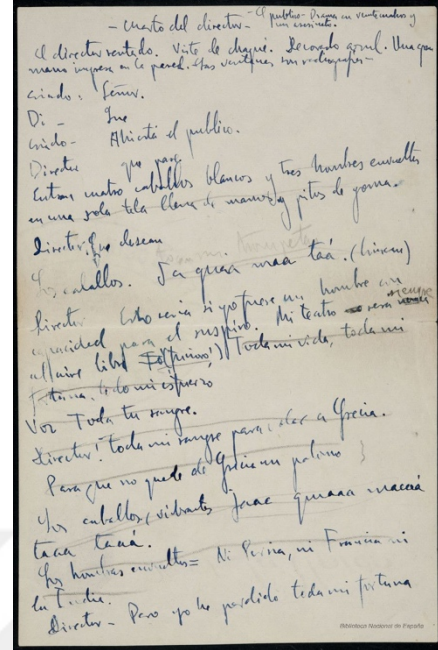 - Cuarto del director - El publico - Drama en veinte cuadros y
un asesinato.
El director sentado. Viste de chaqué. Decorado azul. Una gran
mano impresa en la pared. Las ventanas son radiografias -
Criado: Señor.
Di - Que
Criado - Ahi está el publico.
Director que pase
Entran cuatro caballos blancos y tres hombres envueltos
en una sola tela llena de manos y pitos de goma.
Director. Que desean
Los caballos. (
Director Esto seria si yo fuese un hombre con
capacidad para el suspiro. Mi teatro será siempre
al aire libre Toda mi vida, toda mi
fortuna, todo mi esfuerzo
Voz Toda tu sangre.
Director! toda mi sangre para a Grecia.
Para que no quede de Grecia un palmo
Los caballos, vibrantes
taaa taaá.
Los hombres envueltos = Ni Persia, ni Francia ni
la India.
Director - Pero yo he perdido toda mi fortuna
Biblioteca Nacional de España